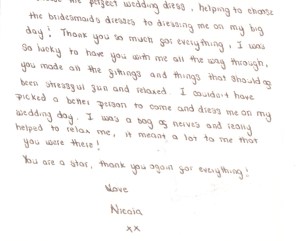 the perfect wedding dress, helping to choose
the bridesmaids dresses to dressing me on my big
day! Thank you so much for everything, I was
so lucky to have you with me all the way through,
you made all the fittings and things that should of
been stressful fun and relaxed. I couldn't have
picked a better person to come and dress me on my
wedding day. I was a bag of nerves and really
helped to relax me, it meant a lot to me that
you were there!
You are a star, thank you again for everything!
Love
Nicola
xx